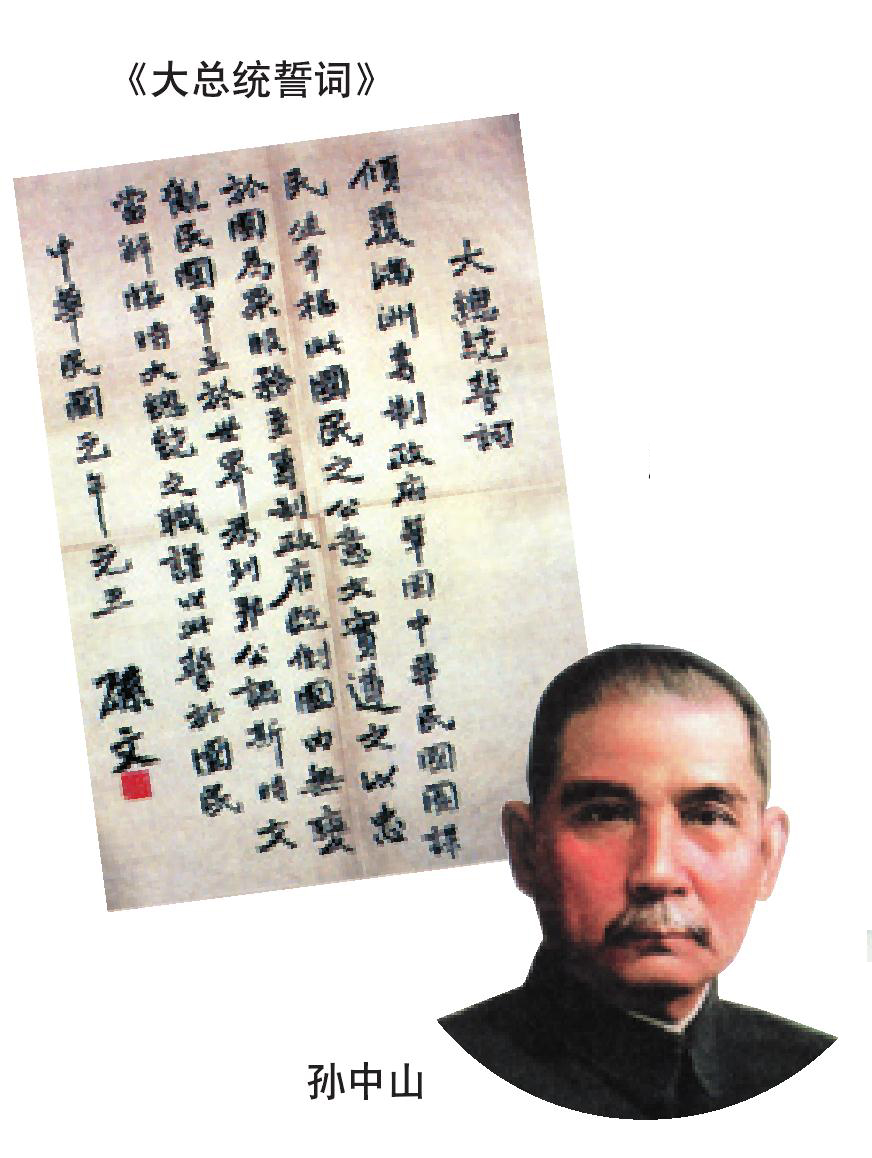 《大总统誓词》
大總統誓詞
傾覆滿洲專制政府鞏固中華民國圖謀
民生幸福此國民之公意文實遵之以忠
於國為眾服務至專制政府既倒國內無變
亂民國卓立於世界為列邦公認斯時文
當解臨時大總統之職謹以此誓於國民
中華民國元年元旦 孫文
孙中山